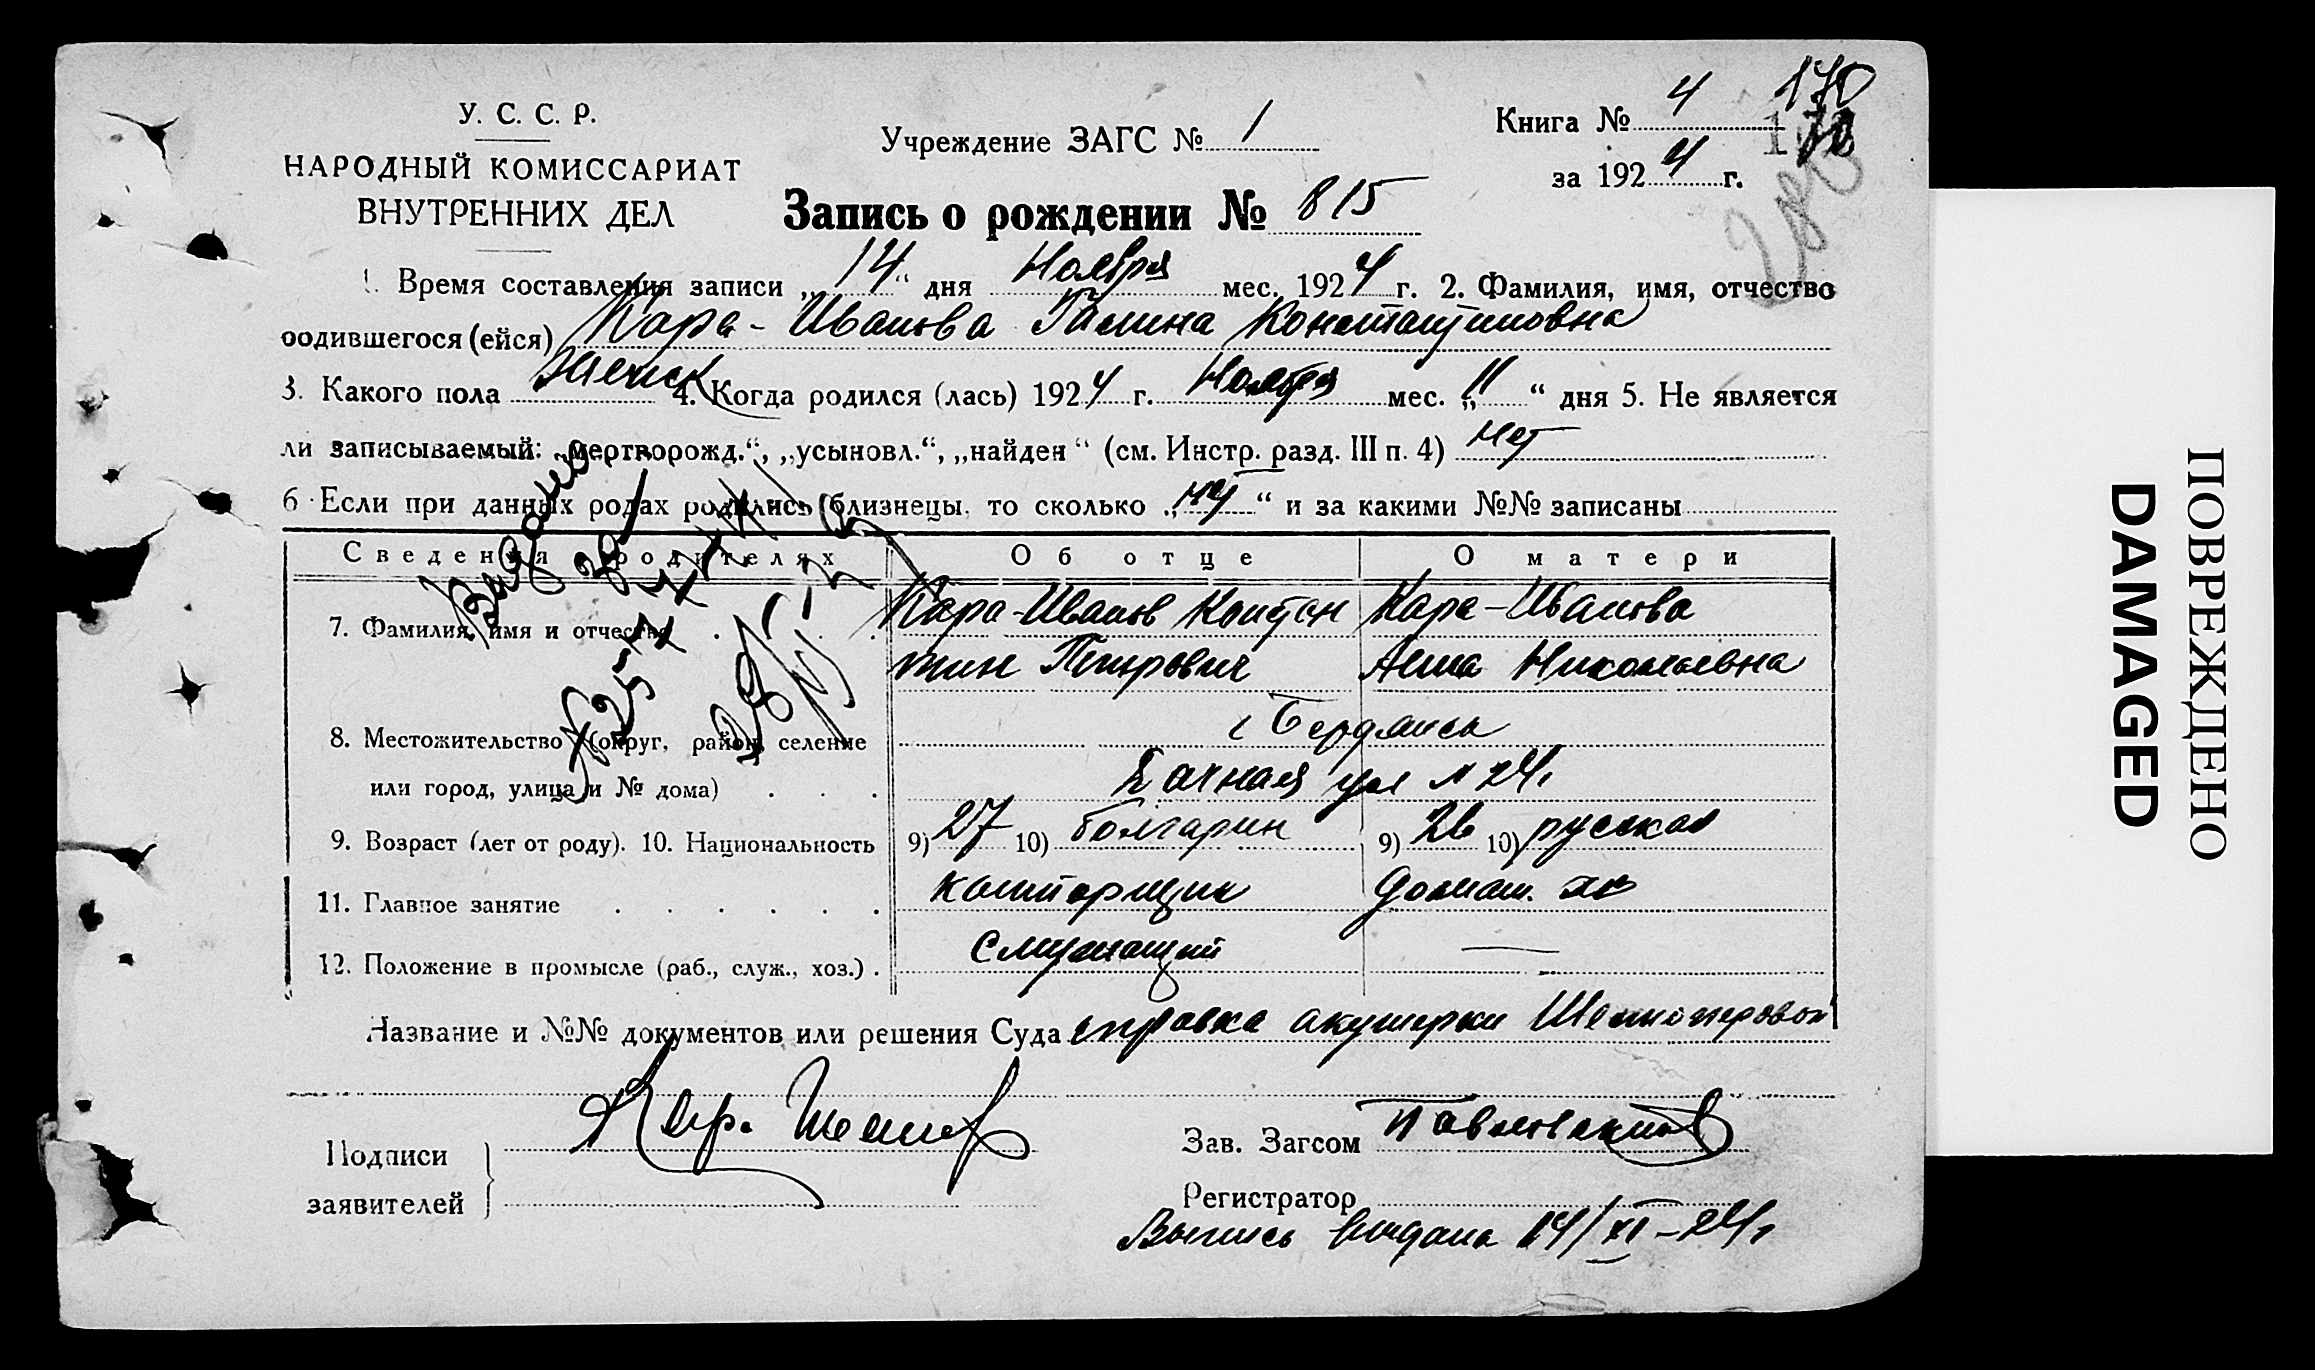 У. С. С. Р.
НАРОДНЫЙ КОМИССАРИАТ
ВНУТРЕННИХ ДЕЛ
Учреждение ЗАГС № 1
Книга № 4
170
за 1924 г.
Запись о рождении № 815
1. Время составления записи „14“ дня Ноября мес. 1924 г. 2. Фамилия, имя, отчество
родившегося (ейся) Кара-Иванова Галина Константиновна
3. Какого пола Женск 4. Когда родился (лась) 1924 г. Ноября мес. „11“ дня 5. Не является
ли записываемый: „мертворожд.“, „усыновл.“, „найден“ (см. Инстр. разд. III п. 4) нет
6 Если при данных родах родились близнецы, то сколько „нет“ и за какими №№ записаны
Сведения о родителях
Об отце
О матери
7. Фамилия, имя и отчество
Кара-Иванов Констан
тин Петрович
Кара-Иванова
Анна Николаевна
8. Местожительство (округ, район, селение
или город, улица и № дома)
г Бердянск
Дачная ул № 24
9. Возраст (лет от роду). 10. Национальность
9) 27 10) болгарин
9) 26 10) русская
11. Главное занятие
конторщик
домаш. хо
12. Положение в промысле (раб., служ., хоз.)
Служащий
—
Название и №№ документов или решения Суда справка акушерки
Подписи
заявителей
Кара Иванов
Зав. Загсом
Регистратор
Выпись выдана 14/XI-24г
Выдано
ПОВРЕЖДЕНО
DAMAGED